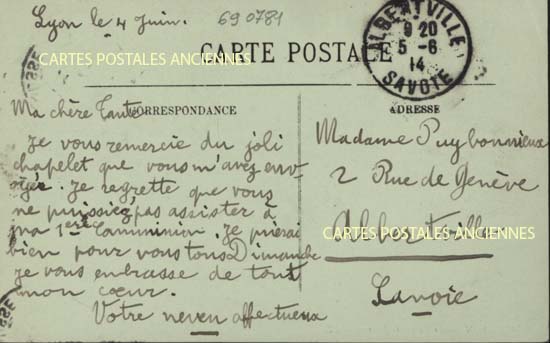 Lyon le 4 Juin.
69 0781
CARTE POSTALE
CARTES POSTALES ANCIENNES
ALBERTVILLE
9 20
5-6
14
SAVOIE
CORRESPONDANCE
ADRESSE
Ma chère Tante
Je vous remercie du joli
chapelet que vous m'avez env-
oyée. Je regrette que vous
ne puissiez pas assister à
ma 1ère Communion. Je prierai
bien pour vous tous Dimanche
je vous embrasse de tout
mon cœur.
Votre neveu affectueux
Madame Puybonnieux
2 Rue de Genève
Albertville
CARTES POSTALES ANCIENNES
Savoie